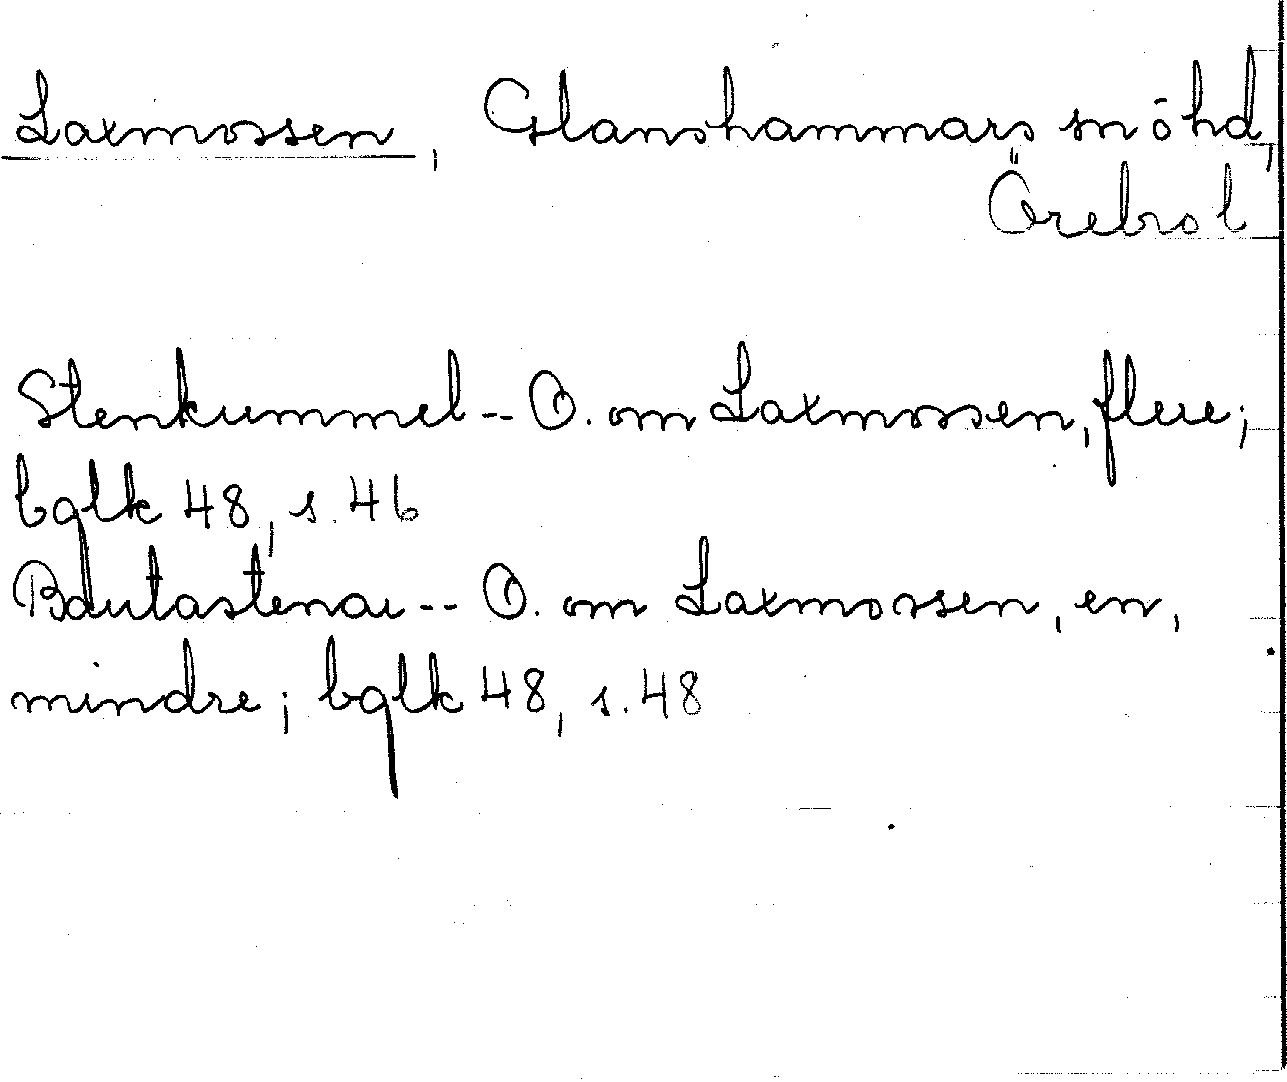 Laxmossen, Glanshammars sn ö hd,
Örebro l
Stenkummel -- O. om Laxmossen, flere;
bglk 48, s. 46
Bautastenar -- O. om Laxmossen, en,
mindre; bglk 48, s. 48